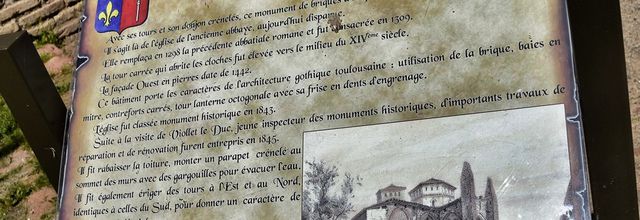 Avec ses tours et son donjon crénelés, ce monument de briques
Il s'agit là de l'église de l'ancienne abbaye, aujourd'hui disparue.
Elle remplaça en 1298 la précédente abbatiale romane et fut consacrée en 1309.
La tour carrée qui abrite les cloches fut élevée vers le milieu du XIVème siècle.
La façade Ouest en pierres date de 1442.
Ce bâtiment porte les caractères de l'architecture gothique toulousaine : utilisation de la brique, baies en
mitre, contreforts carrés, tour lanterne octogonale avec sa frise en dents d'engrenage.
L'église fut classée monument historique en 1843.
Suite à la visite de Viollet le Duc, jeune inspecteur des monuments historiques, d'importants travaux de
réparation et de rénovation furent entrepris en 1845.
Il fit rabaisser la toiture, monter un parapet crénelé au
sommet des murs avec des gargouilles pour évacuer l'eau.
Il fit également ériger des tours à l'Est et au Nord,
identiques à celles du Sud, pour donner un caractère de